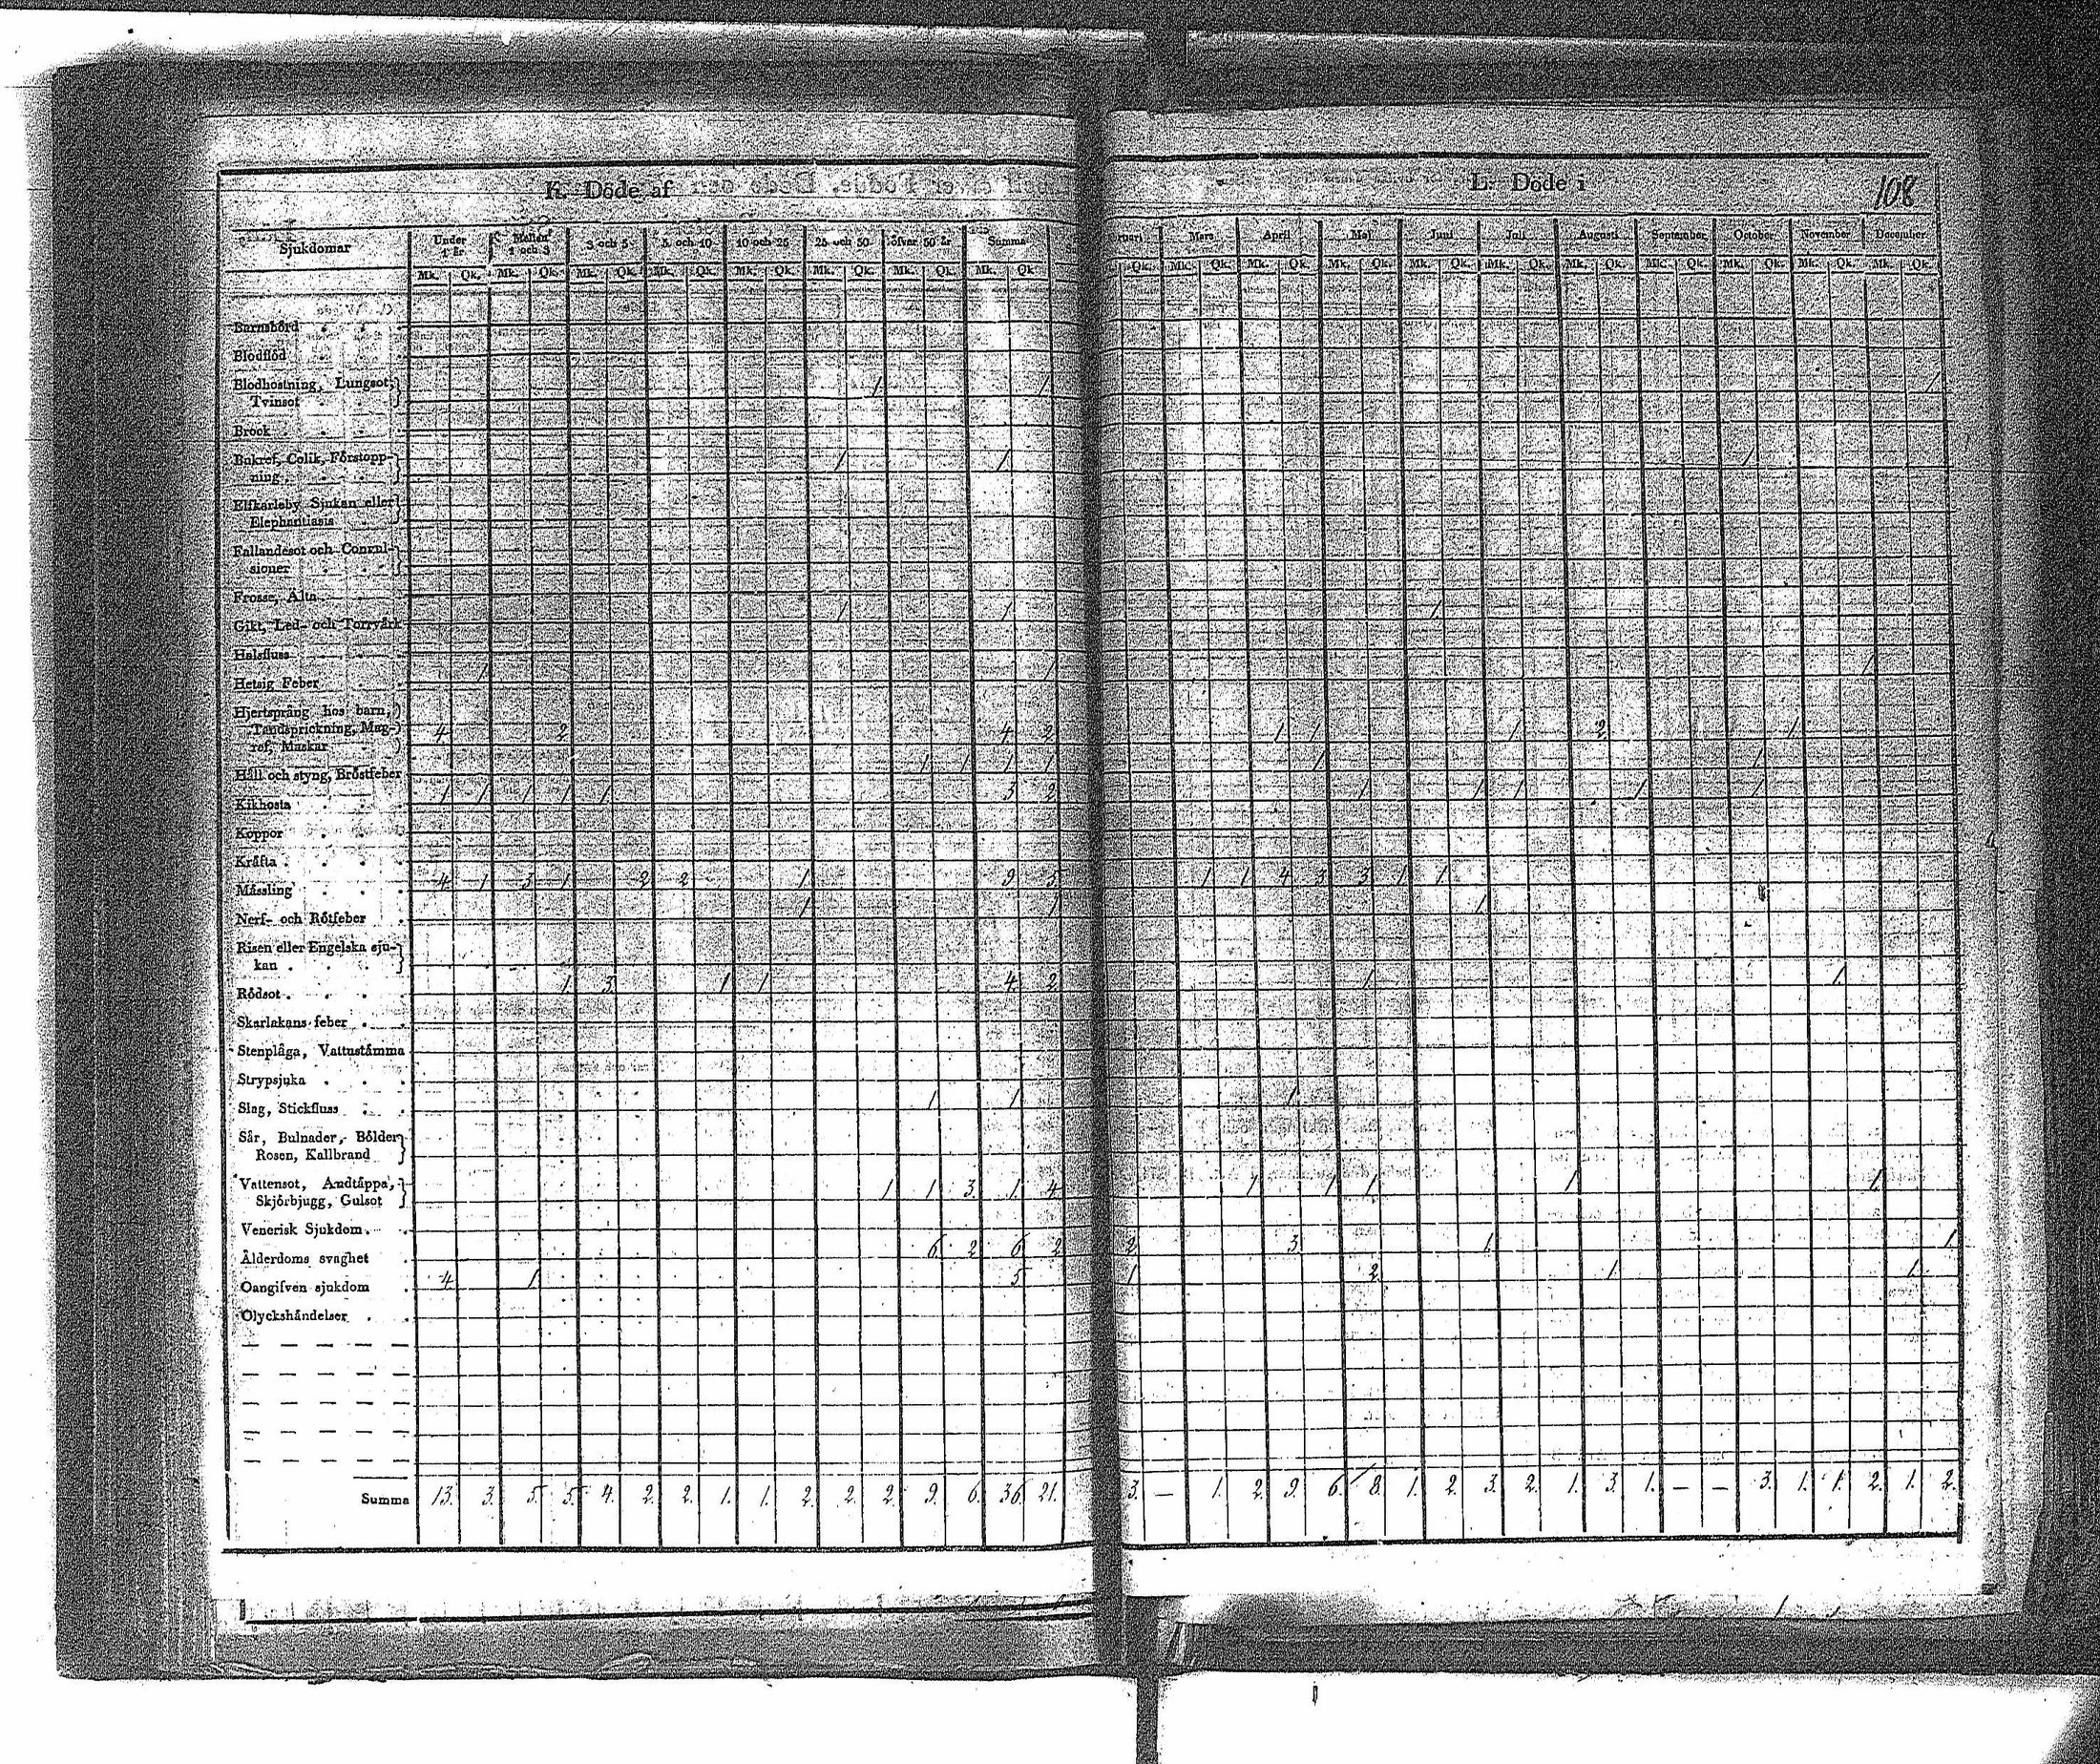 K. Döde af
L. Döde i
108
Sjukdomar Under 1 år Mellan 1 och 3 3 och 5 5 och 10 10 och 25 25 och 50 öfver 50 år Summa
Mk. Qk. Mk. Qk. Mk. Qk. Mk. Qk. Mk. Qk. Mk. Qk. Mk. Qk. Mk. Qk
ruari Mars April Maj Juni Juli Augusti September October November December
Qk. Mk. Qk. Mk. Qk. Mk. Qk. Mk. Qk. Mk. Qk. Mk. Qk. Mk. Qk. Mk. Qk. Mk. Qk. Mk. Qk.
Barnsbörd
Blodflöd
Blodhostning, Lungsot, 1 1 1
Tvinsot
Brock
Bukref, Colik, Förstopp- 1 1 1
ning
Elfkarleby Sjukan eller
Elephantiasis
Fallandesot och Convul-
sioner
Frossa, Älta
Gikt, Led- och Torrvärk 1 1 1
Halsfluss
Hetsig Feber 1 1 1
Hjertsprång hos barn,
Tandsprickning, Mag- 4 2 4 2 1 1 1 2 1
ref, Maskar
Håll och styng, Bröstfeber 1 1 1 1 1 1
Kikhosta 1 1 1 1 1 3 2 1 1 1 1 1
Koppor
Kräfta
Mässling 4 1 3 1 2 2 1 9 5 1 1 4 3 3 1 1
Nerf- och Rötfeber 1 1 1
Risen eller Engelska sju-
kan
Rödsot 1 3 1 1 4 2 1 1
Skarlakans feber
Stenplåga, Vattnstämma
Strypsjuka
Slag, Stickfluss 1 1 1
Sår, Bulnader, Bölder
Rosen, Kallbrand
Vattensot, Andtäppa, 1 1 3 1 4 1 1 1 1 1
Skjörbjugg, Gulsot
Venerisk Sjukdom
Ålderdoms svaghet 6 2 6 2 2 3 1 1
Oangifven sjukdom 4 1 5 1 2 1 1
Olyckshändelser
Summa 13. 3. 5. 5. 4. 2. 2. 1. 1. 2. 2. 2. 9. 6. 36. 21. 3. — 1. 2. 9. 6. 8. 1. 2. 3. 2. 1. 3. 1. — — 3. 1. 1. 2. 1. 2.